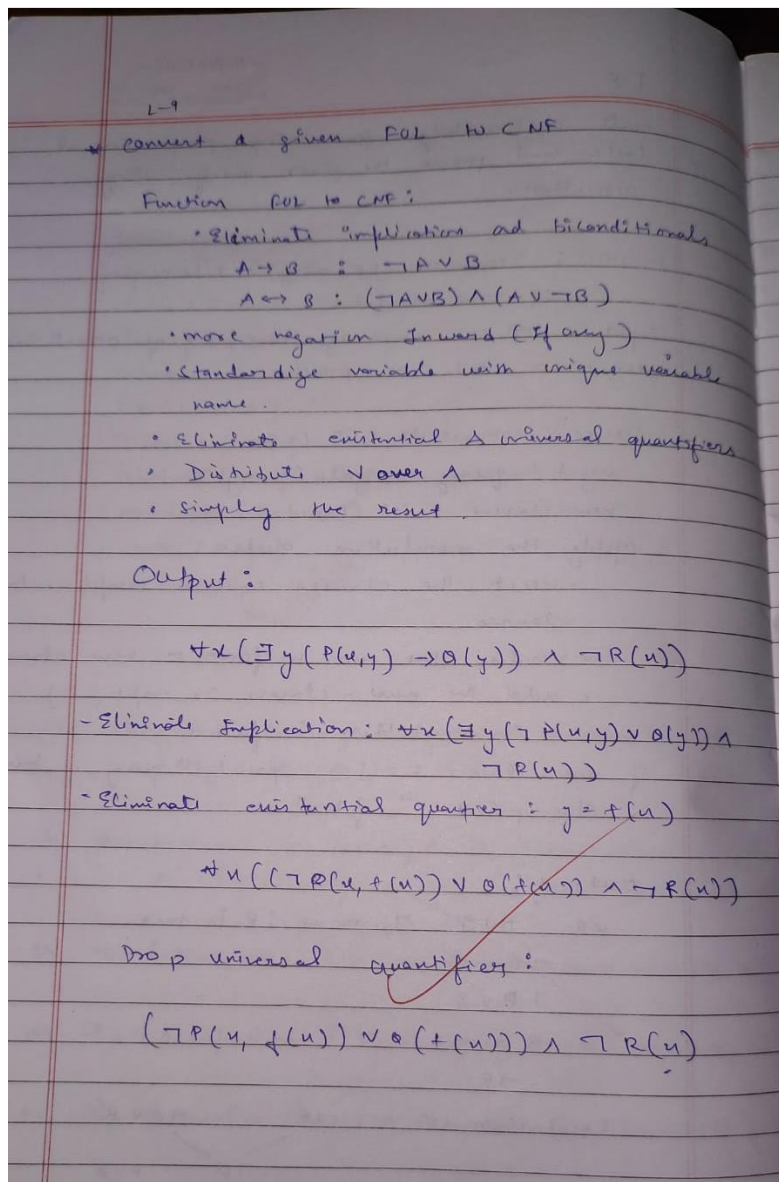 L-9
* Convert a given FOL to CNF
Function FOL to CNF:
• Eliminate implication ad biconditionals
A → B : ¬A ∨ B
A ↔ B : (¬A∨B) ∧ (A ∨ ¬B)
• more negation Inward (If any)
• Standardize variable with unique variable
name.
• Eliminate existential & universal quantifiers
• Distribute ∨ over ∧
• Simply the resut.
Output:
∀x(∃y(P(x,y) → Q(y)) ∧ ¬R(x))
- Eliminate Implication: ∀x(∃y(¬P(x,y) ∨ Q(y)) ∧
¬R(x))
- Eliminate existential quantifier : y = f(x)
∀x((¬P(x, f(x)) ∨ Q(f(x)) ∧ ¬R(x))
Drop universal quantifier:
(¬P(x, f(x)) ∨ Q(f(x))) ∧ ¬R(x)